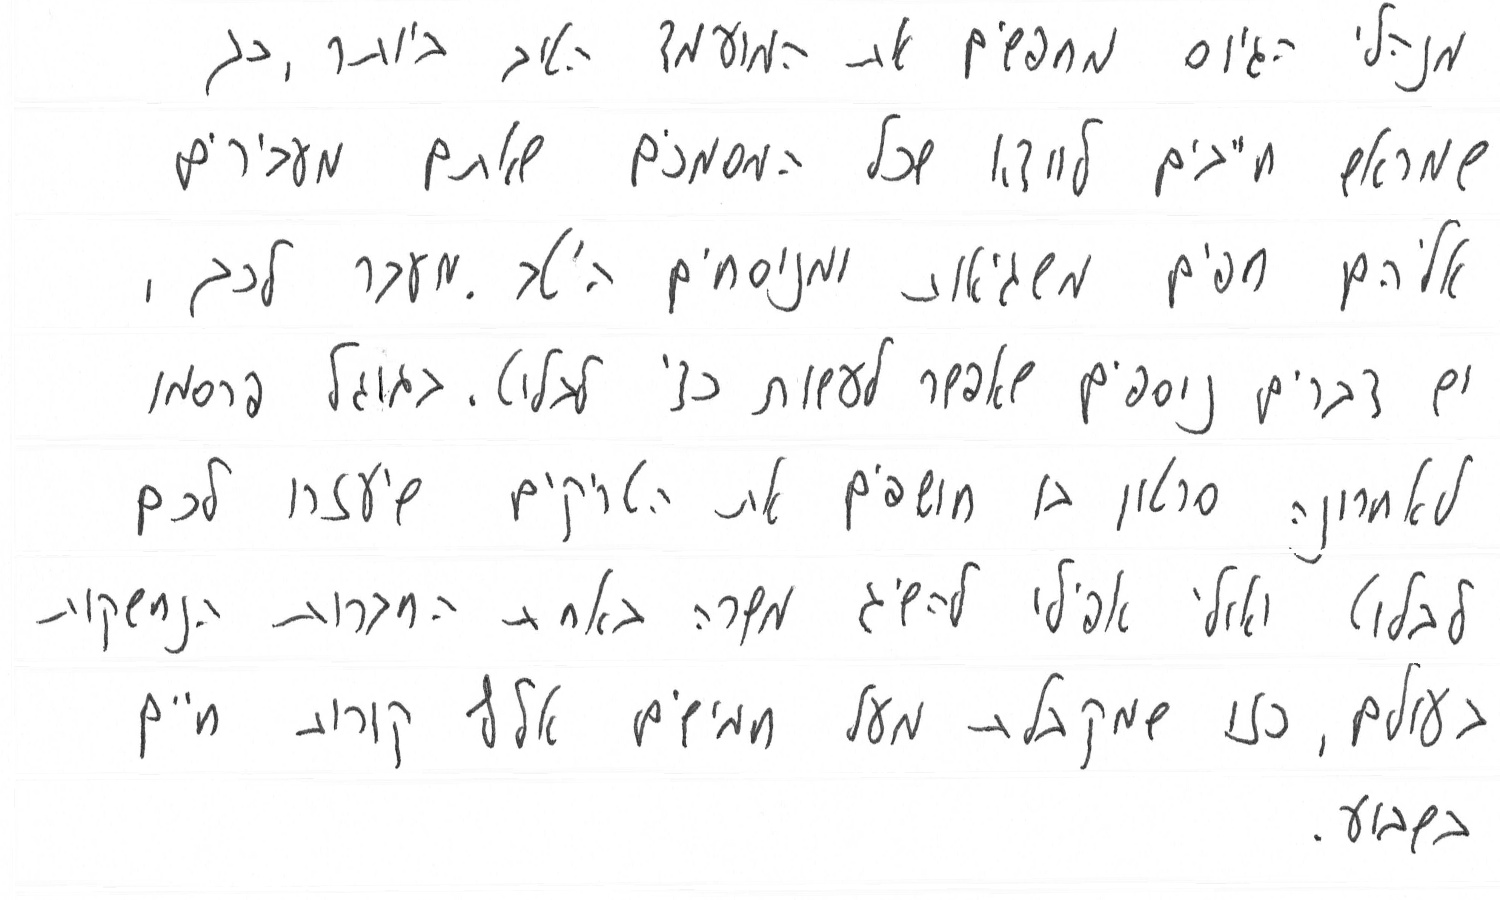 מנהלי הגיוס מחפשים את המועמד הטוב ביותר, כך
שמראש חייבים לוודא שכל המסמכים שאתם מעבירים
אליהם חפים משגיאות ומנוסחים היטב. מעבר לכך,
יש דברים נוספים שאפשר לעשות כדי לבלוט. בגוגל פרסמו
לאחרונה סרטון בו חושפים את הטריקים שיעזרו לכם
לבלוט ואולי אפילו להשיג משרה באחת החברות הנחשקות
בעולם, כזו שמקבלת מעל חמישים אלף קורות חיים
בשבוע.